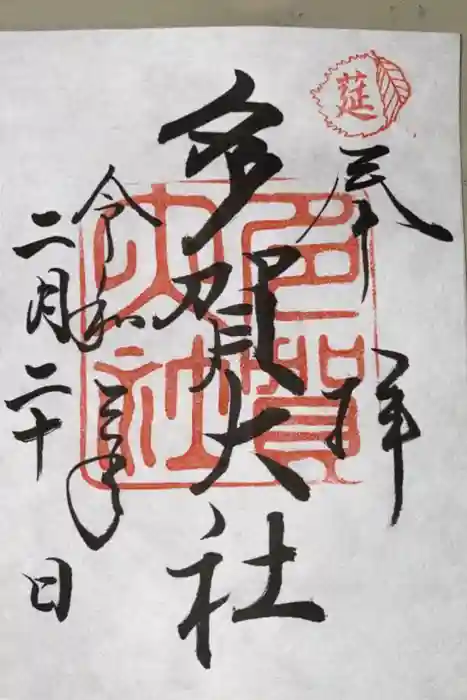 莚
奉拝
多賀大社
多賀大社
令和三年
二月二十日